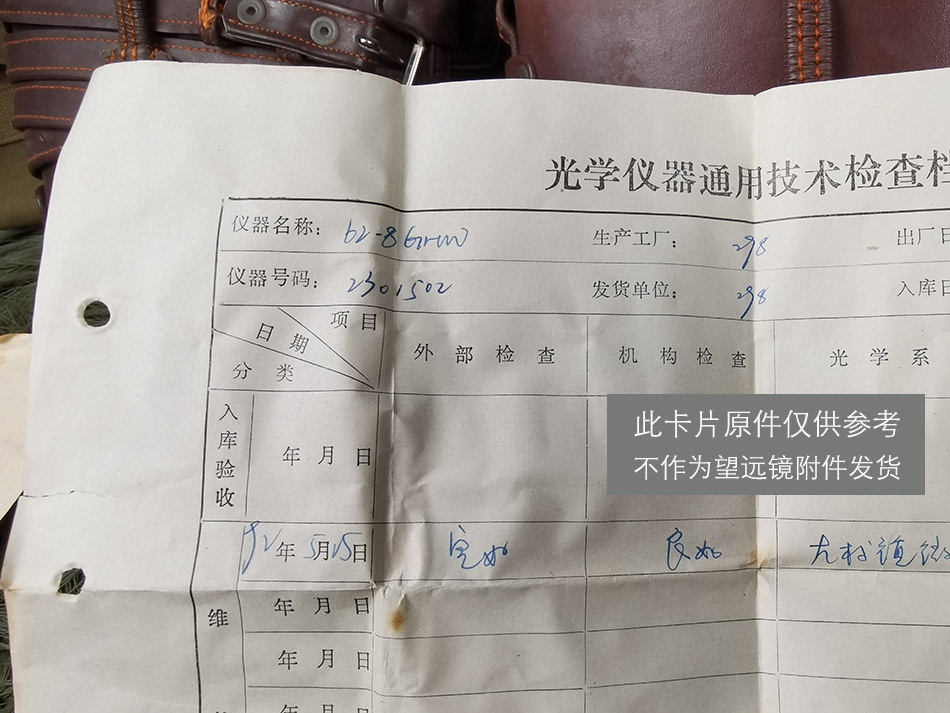 光学仪器通用技术检查档
仪器名称： 62-8 生产工厂： 298 出厂日
仪器号码： 2301502 发货单位： 298 入库日
项目
日期
分类
外部检查 机构检查 光学系
入库验收 年 月 日
此卡片原件仅供参考
不作为望远镜附件发货
92年 5月15日 完好 良好
年 月 日
维
年 月 日
年 月 日